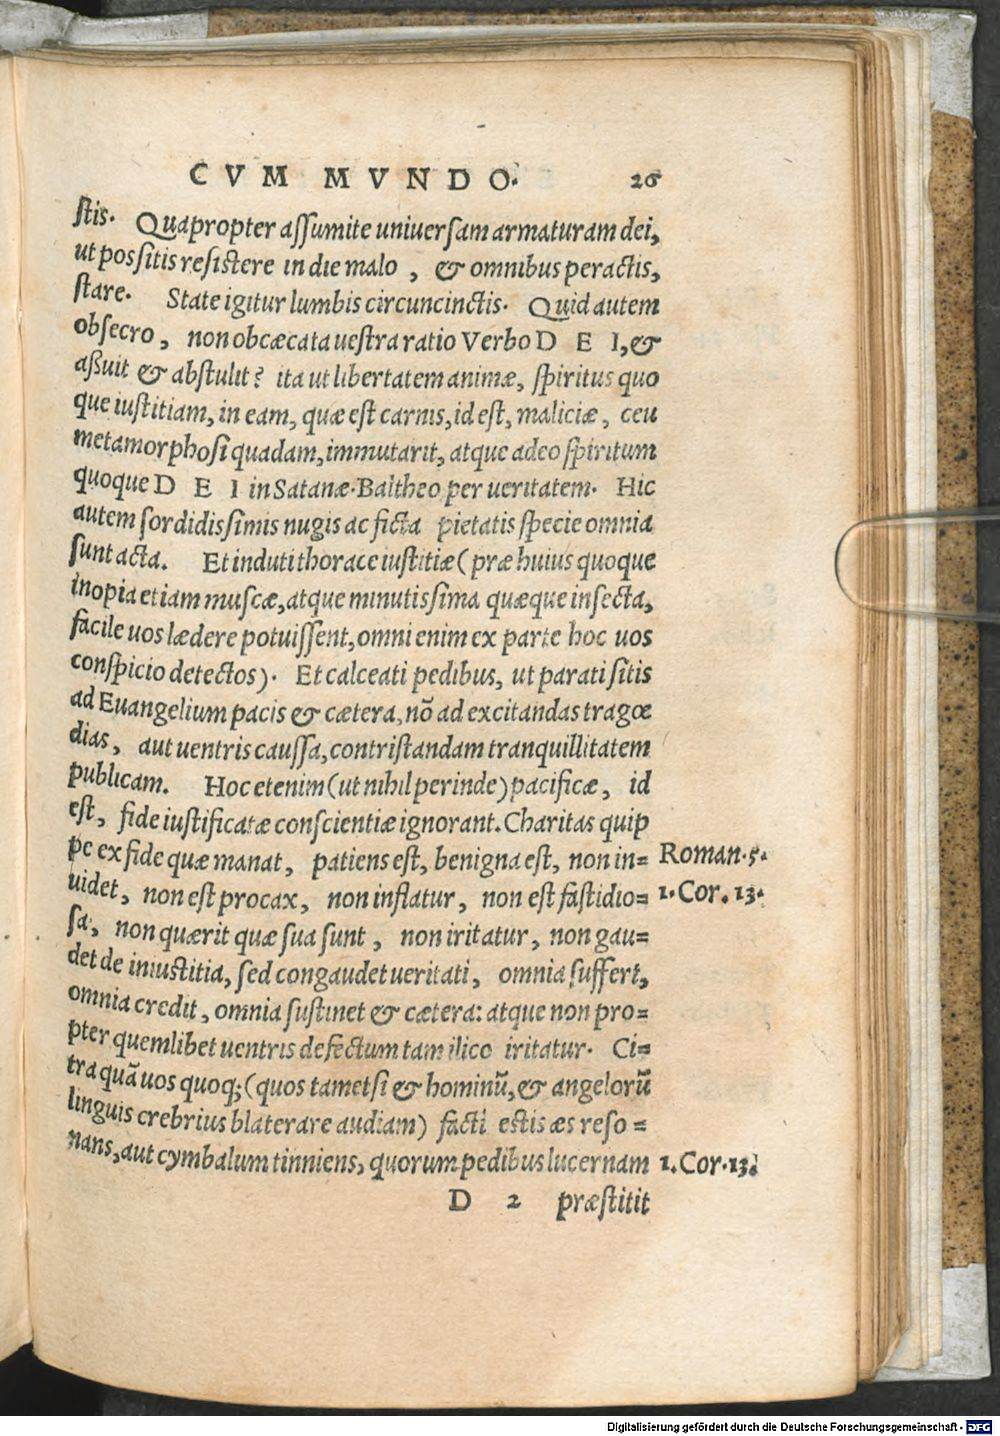 CVM MVNDO. 26
ſtis. Quapropter aſſumite uniuerſam armaturam dei,
ut poſſitis reſiſtere in die malo, & omnibus peractis,
ſtare. State igitur lumbis circuncinctis. Quid autem
obſecro, non obcæcata ueſtra ratio Verbo DEI, &
aßuit & abſtulit? ita ut libertatem animæ, ſpiritus quo
que iuſtitiam, in eam, quæ eſt carnis, id eſt, maliciæ, ceu
metamorphoſi quadam, immutarit, atque adeo ſpiritum
quoque DEI in Satanæ. Baltheo per ueritatem. Hic
autem ſordidiſſimis nugis ac ficta pietatis ſpecie omnia
ſunt acta. Et induti thorace iuſtitiæ (præ huius quoque
inopia etiam muſcæ, atque minutiſſima quæque inſecta,
facile uos lædere potuiſſent, omni enim ex parte hoc uos
conſpicio detectos). Et calceati pedibus, ut parati ſitis
ad Euangelium pacis & cætera, nō ad excitandas tragœ
dias, aut uentris cauſſa, contriſtandam tranquillitatem
publicam. Hoc etenim (ut nihil perinde) pacificæ, id
eſt, fide iuſtificatæ conſcientiæ ignorant. Charitas quip
pe ex fide quæ manat, patiens eſt, benigna eſt, non in= Roman. 5.
uidet, non eſt procax, non inflatur, non eſt faſtidio= 1. Cor. 13.
ſa, non quærit quæ ſua ſunt, non iritatur, non gau=
det de iniuſtitia, ſed congaudet ueritati, omnia ſuffert,
omnia credit, omnia ſuſtinet & cætera: atque non pro=
pter quemlibet uentris defectum tam ilico iritatur. Ci=
tra quā uos quoq; (quos tametſi & hominū, & angelorū
linguis crebrius blaterare audiam) facti eſtis æs reſo=
nans, aut cymbalum tinniens, quorum pedibus lucernam 1. Cor. 13.
D 2 præſtitit
Digitalisierung gefördert durch die Deutsche Forschungsgemeinschaft - DFG